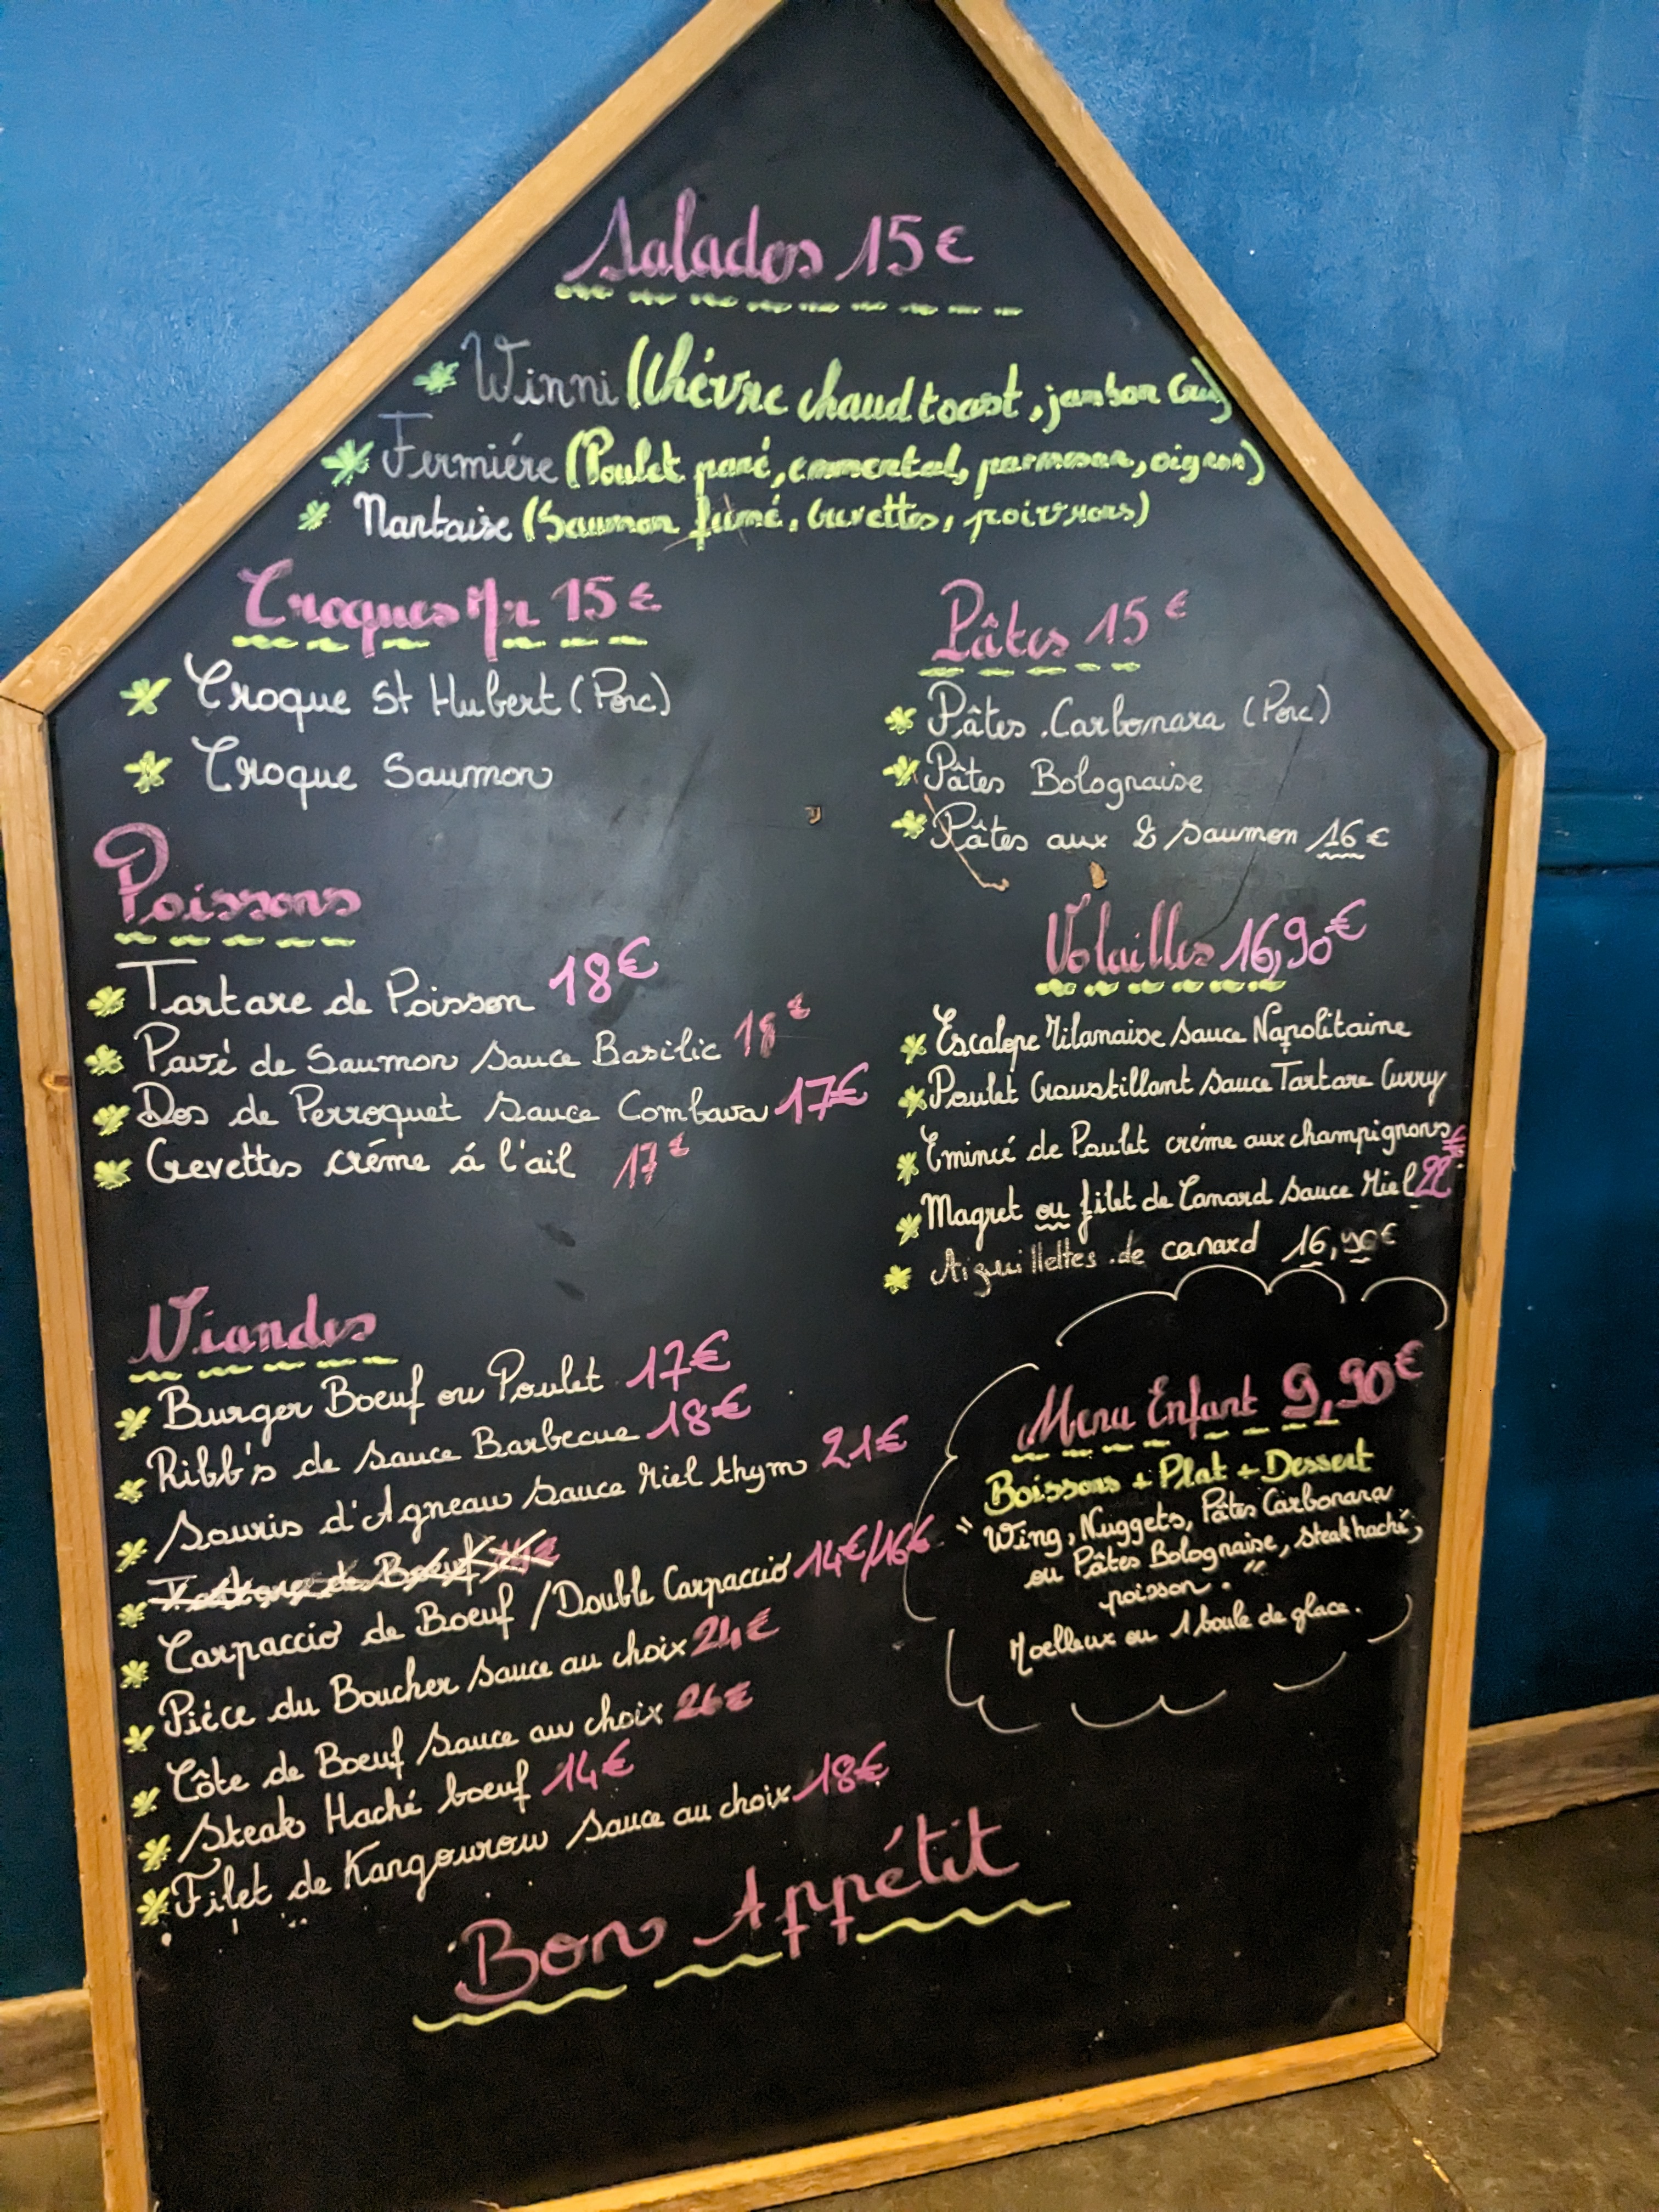 Salades 15€
Winni (Chèvre chaud toast, jambon Cru)
Fermiére (Poulet pané, emmental, parmesan, oignon)
Nantaise (Saumon fumé, Crevettes, poivrons)
Croques Mr 15€
Croque St Hubert (Porc)
Croque Saumon
Poissons
Tartare de Poisson 18€
Pavé de Saumon sauce Basilic 18€
Dos de Perroquet sauce Combava 17€
Crevettes créme á l'ail 17€
Viandes
Burger Boeuf ou Poulet 17€
Ribb's de sauce Barbecue 18€
Souris d'Agneau sauce Miel thym 21€
de Boeuf
Carpaccio de Boeuf / Double Carpaccio 14€/16€
Piéce du Boucher sauce au choix 24€
Côte de Boeuf sauce au choix 26€
Steak Haché boeuf 14€
Filet de Kangourou sauce au choix 18€
Pâtes 15€
Pâtes Carbonara (Porc)
Pâtes Bolognaise
Pâtes aux 2 saumon 16€
Volailles 16,90€
Escalope Milanaise sauce Napolitaine
Poulet Croustillant sauce Tartare Curry
Emincé de Poulet créme aux champignons
Magret ou filet de Canard sauce Miel 22€
Aiguillettes de canard 16,90€
Menu Enfant 9,90€
Boissons + Plat + Dessert
" Wing, Nuggets, Pâtes Carbonara
ou Pâtes Bolognaise, steak haché,
poisson. "
Moelleux ou 1 boule de glace.
Bon Appétit